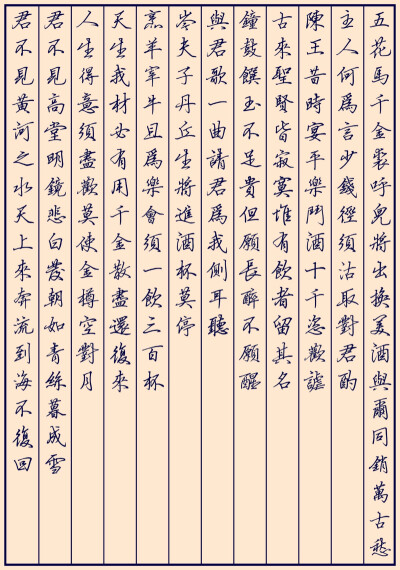 君不見黃河之水天上來奔流到海不復回
君不見高堂明鏡悲白髮朝如青絲暮成雪
人生得意須盡歡莫使金樽空對月
天生我材必有用千金散盡還復來
烹羊宰牛且爲樂會須一飲三百杯
岑夫子丹丘生將進酒杯莫停
與君歌一曲請君爲我側耳聽
鐘鼓饌玉不足貴但願長醉不願醒
古來聖賢皆寂寞惟有飲者留其名
陳王昔時宴平樂鬥酒十千恣歡謔
主人何爲言少錢徑須沽取對君酌
五花馬千金裘呼兒將出換美酒與爾同銷萬古愁